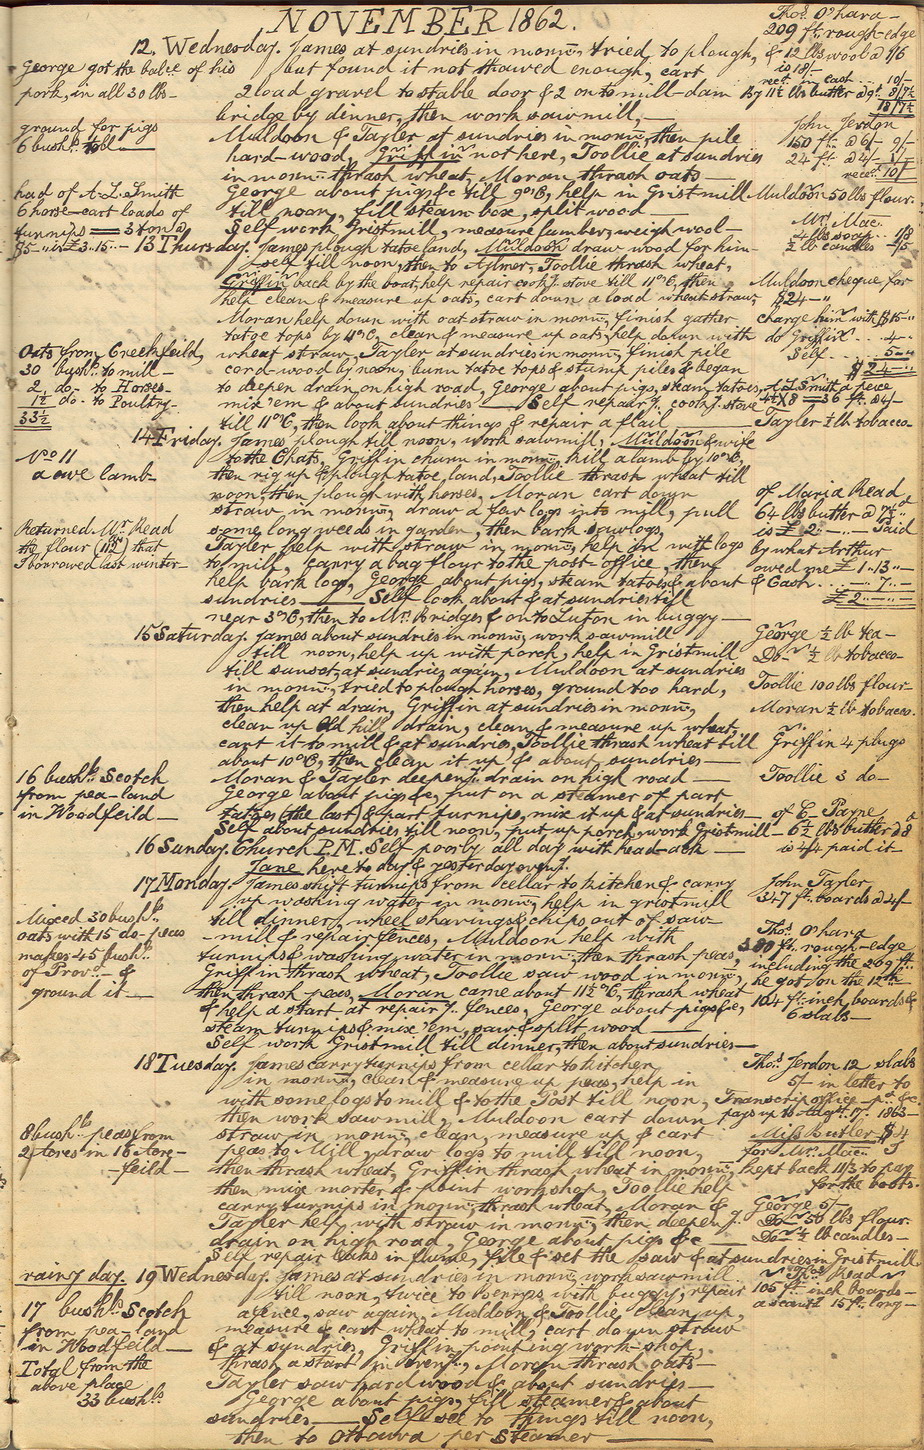 NOVEMBER 1862.
12, Wednesday. James at sundries in morn̄, tried to plough,
but found it not thawed enough, cart
2 load gravel to stable door & 2 on to mill-dam
bridge by dinner, then work sawmill, —
Muldoon & Tayler at sundries in morn̄, then pile
hard-wood, Griffin not here, Toollie at sundries
in morn̄ thrash wheat, Moran thrash oats —
George about pigs &c till 9 o'C, help in Gristmill
till noon, fill steam box, split wood —
Self work Gristmill, measure lumber, weigh wool —
George got the balce of his
pork, in all 30 lbs —
ground for pigs
6 bushls
had of A. L. Smitt
6 horse-cart loads of
turnips = 3 ton @
$5 - is £3.15 -
Thos. O'hara —
209 ft. rough-edge
& 12 lbs wool @ 1/6
is 18/-
rect. in cash .. 10/-
By 11½ lbs butter @ 9d. 8/7½
18/7½
John Jerdon
150 ft. @ 6/- 9/-
24 ft. @ 4/- 1/-
recd. 10/-
Muldoon 50 lbs flour.
Mr. Mac.
4 lbs soap .. 1/8
½ lb candles - /5
13 Thursday. James plough tatoe land, Muldoon draw wood for him-
self till noon, then to Aylmer, Toollie thrash wheat,
Griffin back by the boat, help repair cook'g stove till 11 o'C, then
help clean & measure up oats, cart down a load wheat straw,
Moran help down with oat straw in morn̄, finish gather
tatoe tops by 11 o'C, clean & measure up oats, help down with
wheat straw, Tayler at sundries in morn̄, finish pile
cord-wood by noon, burn tatoe tops & stump piles & began
to deepen drain on high road, George about pigs, steam tatoes,
mix 'em & about sundries — Self repair'g cook'g stove
till 11 o'C, then look about things & repair a flail
Oats from Creekfeild,
30 bushls to mill —
2 do - to Horses -
1½ do - to Poultry -
33½
Muldoon cheque for
$24 —
charge him with $15 - "
do Griffin .. 4 -
Self .. 5 -
$24 -
A. L. Smith a piece
4½ X 8 = 36 ft. @ 4/-
Tayler ½ lb tobacco -
14 Friday. James plough till noon, work sawmill, Muldoon & wife
to the Chats, Griffin churn in morn̄, kill a lamb by 10 o'C,
then rig up & plough tatoe land, Toollie thrash wheat till
noon, then plough with horses, Moran cart down
straw in morn̄, draw a few logs into mill, pull
some long weeds in garden, then bark sawlogs,
Tayler help with straw in morn̄, help in with logs
to mill, carry a bag flour to the post-office, then
help bark logs, George about pigs, steam tatoes & about
sundries — Self look about & at sundries till
near 3 o'C, then to Mr. Bridges & on to Luton in buggy —
No 11
a owe lamb -
Returned Mr. Read
the flour (112 lbs) that
I borrowed last winter -
of Maria Read
64 lbs butter @ 7½d
is £2 - " - Paid
by what Arthur
owed me £1..13..
& Cash .. - 7 -
£2 - " - "
15 Saturday. James about sundries in morn̄, work sawmill
till noon, help up with porch, help in Gristmill
till sunset, at sundries again, Muldoon at sundries
in morn̄, tried to plough horses, ground too hard,
then help at drain, Griffin at sundries in morn̄,
clean up Old hill drain, clean & measure up wheat,
cart it to mill & at sundries, Toollie thrash wheat till
about 10 o'C, then clean it up & about sundries —
Moran & Tayler deepen'g drain on high road —
George about pigs &c, put on a steamer of part
tatoes (the last) & part turnips, mix it up & at sundries —
Self about sundries till noon, put up porch, work Gristmill —
16 bushls Scotch
from pea-land
in Woodfeild —
George ½ lb tea —
Do - ½ lb tobacco -
Toollie 100 lbs flour -
Moran ½ lb tobacco.
Griffin 4 plugs
Toollie 3 do -
of C - Payne
6½ lbs butter @ 8d
is 4/4 paid it -
16 Sunday. Church P.M. Self poorly all day with head-ach —
Jane here to day & yesterday even'g.
17 Monday. James shift turnips from cellar to kitchen & carry
up washing water in morn̄, help in gristmill
till dinner, wheel shavings & chips out of saw-
mill & repair fences, Muldoon help with
turnips & washing water in morn̄, then thrash peas,
Griffin thrash wheat, Toollie saw wood in morn̄,
then thrash peas, Moran came about 11½ o'C, thrash wheat
& help a start at repair'g fences, George about pigs &c,
steam turnips & mix 'em, saw & split wood —
Self work Gristmill till dinner, then about sundries —
Mixed 30 bushls
oats with 15 do - peas
makes 45 bushls
of Prov. - &
ground it —
John Tayler
347 ft. boards @ 4/-
Thos. O'hara
389 ft. rough-edge
including the 209 ft.
he got on the 12th -
104 ft. inch boards &
6 slabs —
18 Tuesday. James carry turnips from cellar to kitchen
in morn̄, clean & measure up peas, help in
with some logs to mill & to the Post till noon,
then work sawmill, Muldoon cart down
straw in morn̄, clean, measure up & cart
peas to Mill, draw logs to mill till noon,
then thrash wheat, Griffin thrash wheat in morn̄,
then mix morter & point workshop, Toollie help
carry turnips in morn̄, thrash wheat, Moran &
Tayler help with straw in morn̄, then deepen'g
drain on high road, George about pigs &c —
Self repair leaks in flume, file & set the saw & at sundries in Gristmill
8 bushls peas from
2 acres in 16 acre -
- feild —
Thos. Jerdon 12 slabs
5/- in letter to
Transcript office - pd. &c.
pays up to Augt. 17. 1863 —
Miss Butler $4
for Mr. Mac.
kept back 11/3 to pay
for the boots.
George 5/-
Do - 50 lbs flour.
Do - ½ lb candles -
19 Wednesday. James at sundries in morn̄, work sawmill
till noon, twice to with buggy, repair
a fence, saw again, Muldoon & Toollie clean up,
measure & cart wheat to mill, cart down straw
& at sundries, Griffin pointing work-shop,
thrash a start in even'g, Moran thrash oats —
Tayler saw hard wood & about sundries —
George about pigs, fill steamer & about
sundries — Self see to things till noon,
then to Ottawa per Steamer —
rainy day.
17 bushls Scotch
from pea-land
in Woodfeild —
Total from the
above place
33 bushls
Thos. Read
105 ft. inch boards -
a scant 15 ft. long -